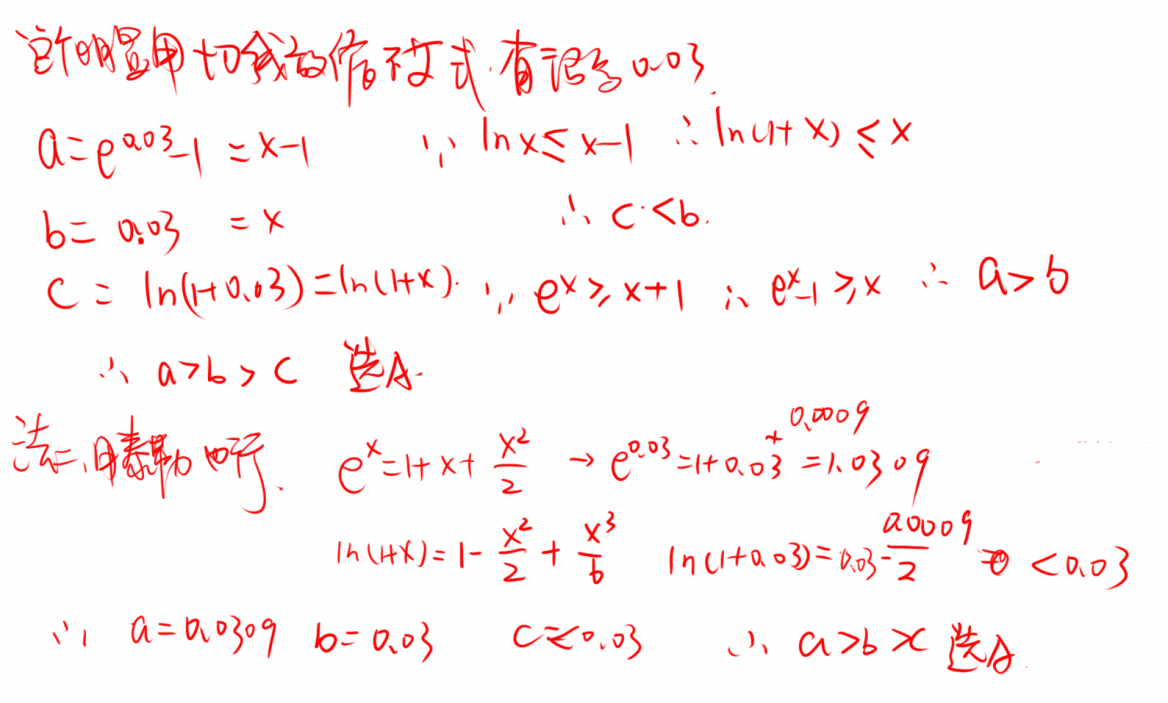 这个明显用切线放缩不等式.有记号0.03
a=e^0.03-1 =x-1 ∵ lnx≤x-1 ∴ln(1+x)≤x
b= 0.03 =x ∴ c<b.
c= ln(1+0.03)=ln(1+x). ∵ e^x≥x+1 ∴ e^x-1≥x ∴ a>b
∴ a>b>c 选A.
法二、用泰勒也行. e^x=1+x+x^2/2 → e^0.03=1+0.03+0.0009=1.0309
ln(1+x)=1-x^2/2+x^3/6 ln(1+0.03)=0.03-0.0009/2 <0.03
∴ a=0.0309 b=0.03 c<0.03 ∴ a>b>c 选A